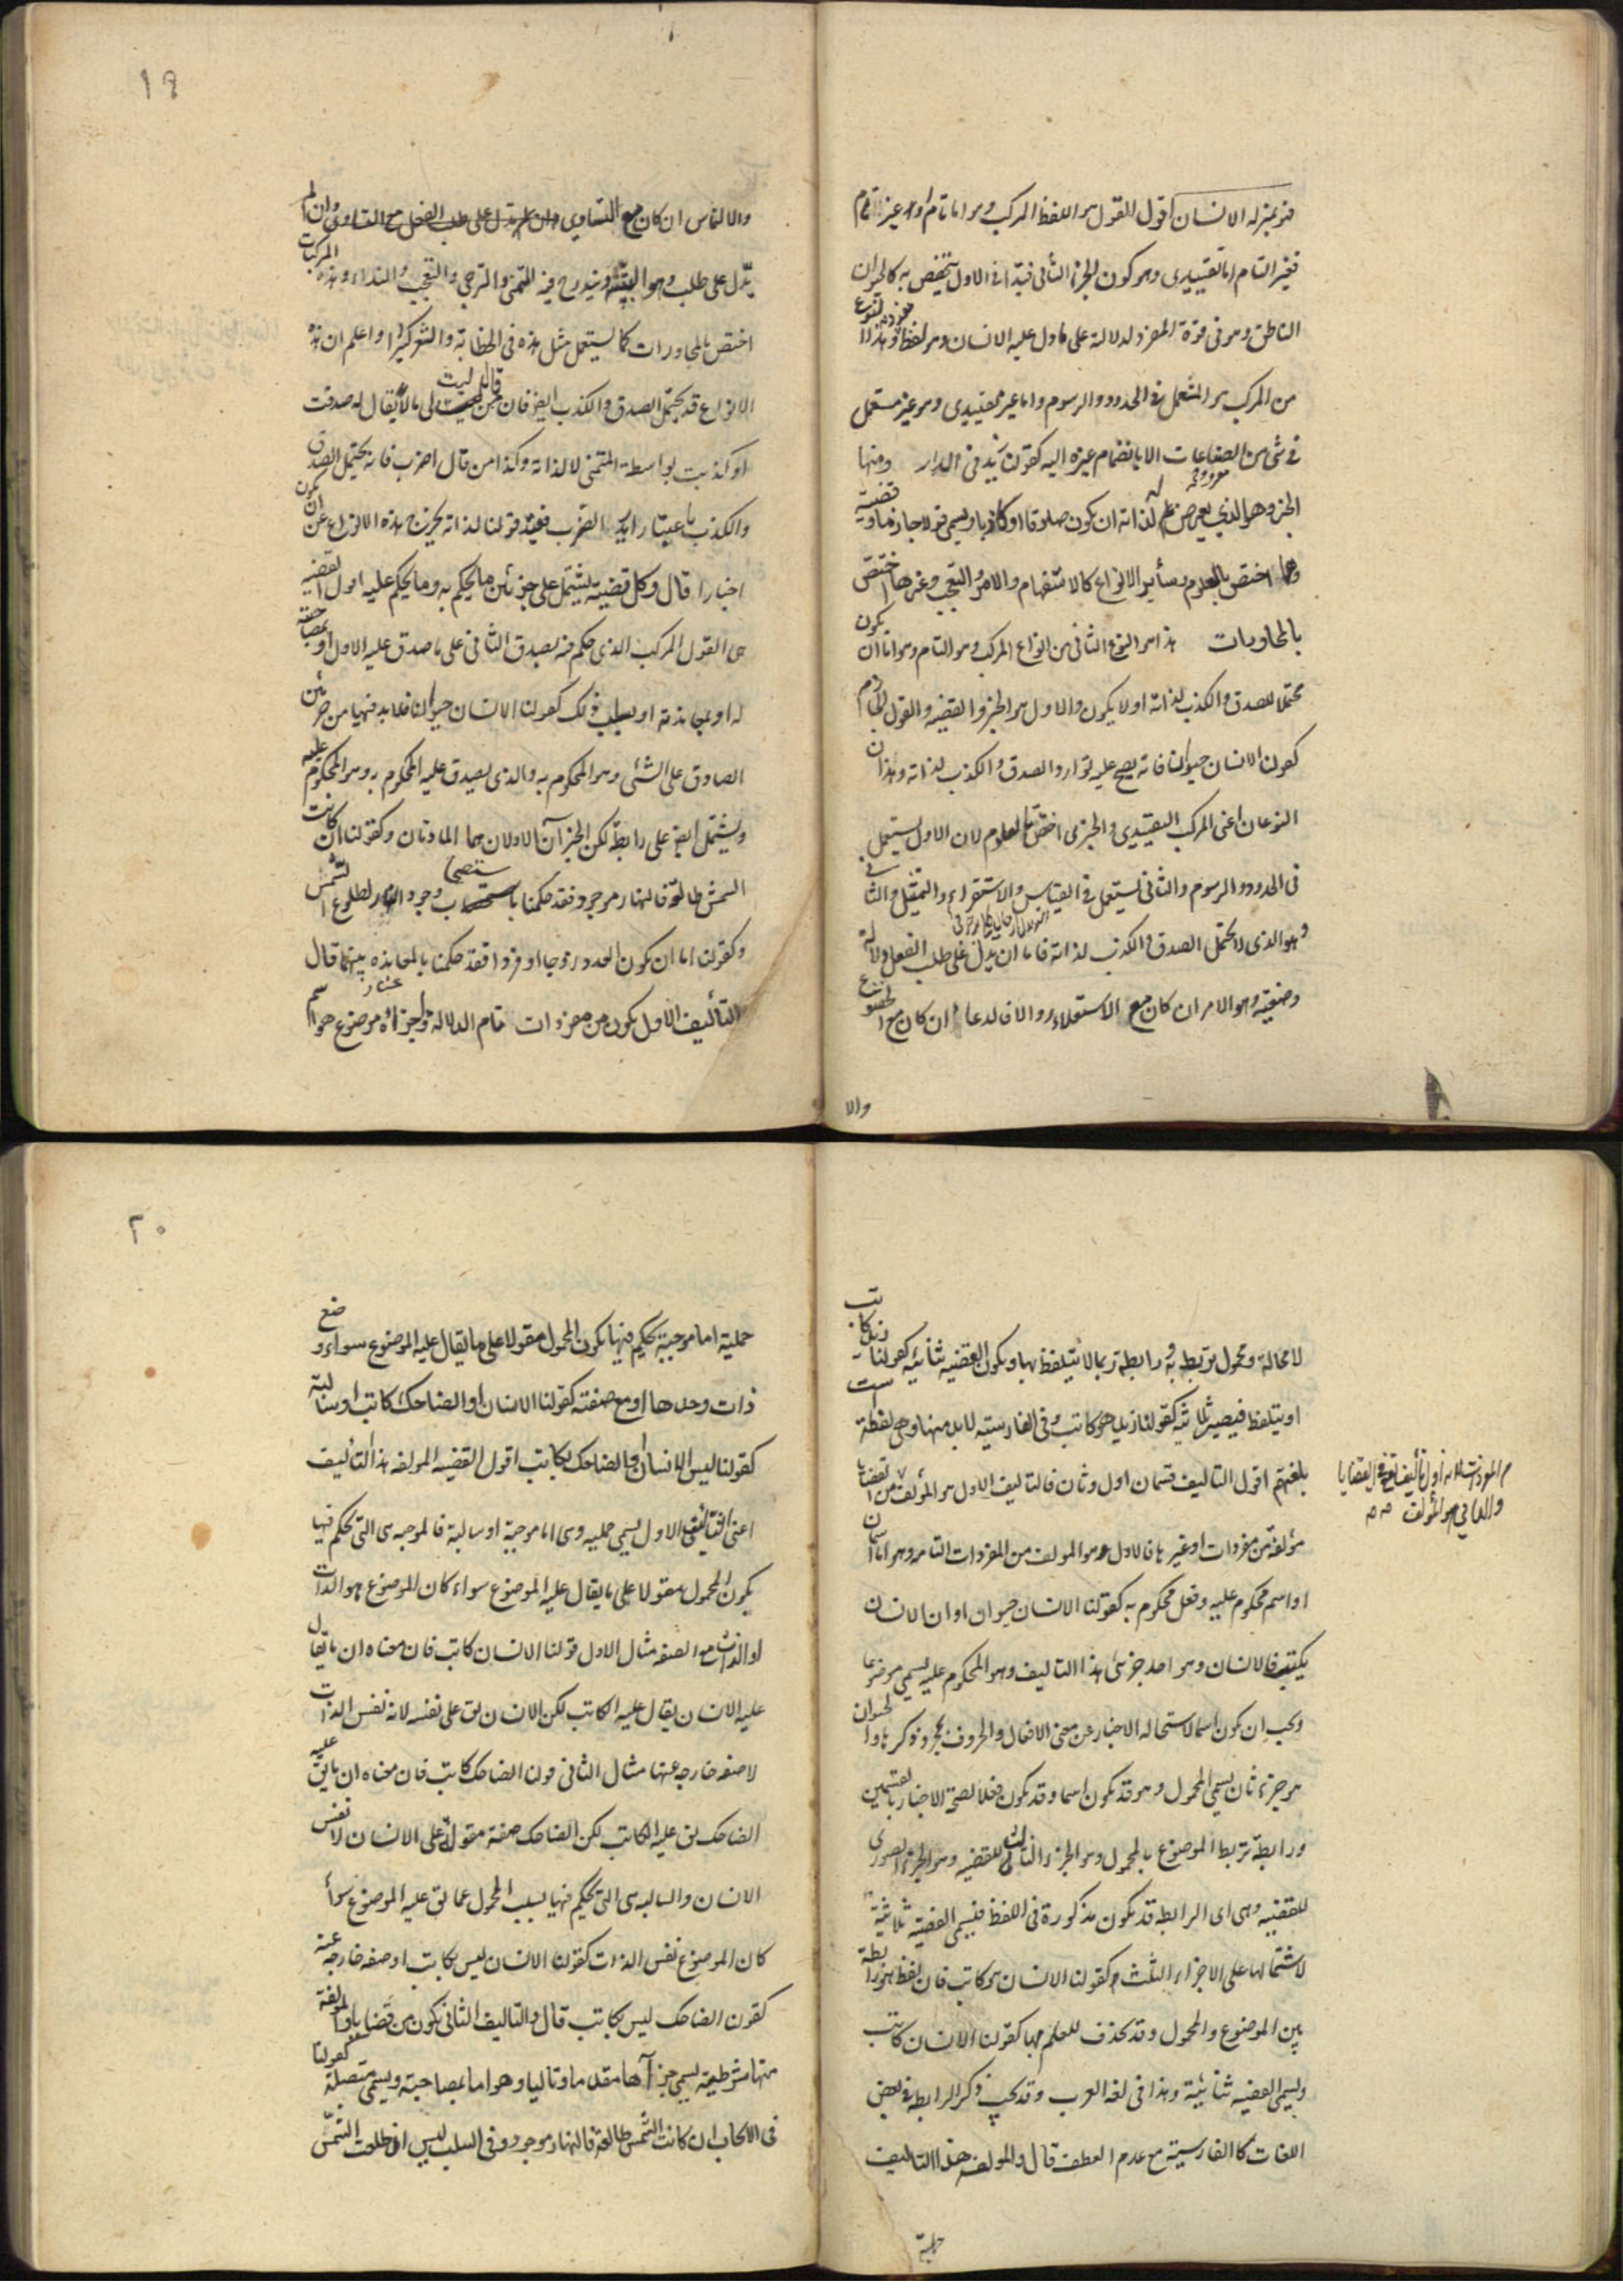 فهو بمنزلة الانسان اقول القول هو اللفظ المركب وهو اما تام او غير تام
فغير التام اما تقييدى وهو كون الجزء الثانى قيدا فى الاول يتخصص به كالحيوان
الناطق وهو فى قوة المفرد لدلالة على ما دل عليه الانسان وهو لفظ مفرد وهذا النوع
من المركب هو المستعمل فى الحدود والرسوم واما غير تقييدى وهو غير مستعمل
فى شئ من الصناعات الا بانضمام غيره اليه كقولن زيد فى الدار ومنها
الخبر وهو الذي يعرض له لذاته ان يكون صادقا او كاذبا ويسمى قولا جازما وقضية
اختص بالعلوم وسائر الانواع كالاستفهام والامر والتعجب وغيرها اختص
بالمحاورات هذا هو النوع الثانى من انواع المركب وهو التام وهو اما ان يكون
محتملا للصدق والكذب لذاته او لا يكون والاول هو الخبر والقضيه والقول الجازم
كقولنا الانسان حيوان فانه يصح عليه توارد الصدق والكذب لذاته وهذان
النوعان اعنى المركب التقييدى والخبرى اختص بالعلوم لان الاول يستعمل
فى الحدود والرسوم والثانى يستعمل فى القياس والاستقراء والتمثيل والثانى
وهو الذى لا يحتمل الصدق والكذب لذاته فاما ان يدل على طلب الفعل دلالة
وضعية وهو الامر ان كان مع الاستعلاء والا فالدعاء ان كان مع الخضوع
والا
١٩
والالتماس ان كان مع التساوى وان لم
يدل على طلب وهو التنبيه ويندرج فيه التمنى والترجى والتعجب والنداء وهذه المركبات
اختص بالمحاورات كما يستعمل مثل هذه فى الخطابة والشعر كثيرا واعلم ان هذه
الانواع قد يحتمل الصدق والكذب ايضا فان من قال ليت لى مالا يقال له صدقت
او كذبت بواسطة التمنى لا لذاته وكذا من قال اضرب فانه يحتمل الصدق
والكذب باعتبار ارادة الضرب فقيد قولنا لذاته يخرج هذه الانواع عن ان يكون
اخبارا قال وكل قضية يشتمل على جزئين ما يحكم به وما يحكم عليه اقول القضيه
هى القول المركب الذى حكم فيه بصدق الثانى على ما صدق عليه الاول او بمصاحبته
له او بمعاندته او بسلب ذلك كقولنا الانسان حيوان فلا بد فيها من جزئين
الصادق على الشئ وهو المحكوم به والذى يصدق عليه المحكوم به وهو المحكوم عليه
ويشتمل ايضا على رابطة لكن الجزآن الاولان هما المادتان وكقولنا ان كانت
الشمس طالعة فالنهار موجود فقد حكمنا باستصحاب وجود النهار لطلوع الشمس
وكقولنا اما ان يكون العدد زوجا او فردا فقد حكمنا بالمعانده بينهما قال
التأليف الاول يكون من مفردات تمام الدلالة واجزاؤه موضوع هو اسم
لا محالة ومحمول يرتبط به ورابطة ربما لا يتلفظ بها ويكون القضيه ثنائية كقولنا زيد كاتب
او يتلفظ فيصير ثلاثية كقولنا زيد هو كاتب وفى الفارسيته لا بد منها وهى لفظة است
بلغتهم اقول التاليف قسمان اول وثان فالتاليف الاول هو المؤلف من القضايا
مؤلفة من مفردات او غيرها فالاول هو المولف من المفردات التامه وهو اما اسمان
او اسم محكوم عليه وفعل محكوم به كقولنا الانسان حيوان او ان الانسان
يكتب فالانسان وهو احد جزئى هذا التاليف وهو المحكوم عليه يسمى موضوعا
ويجب ان يكون اسما لاستحاله الاخبار عن معنى الافعال والحروف بمجرد ذكرها والحيوان
هو جزء ثان يسمى المحمول وهو قد يكون اسما وقد يكون فعلا لصحة الاخبار بالقسمين
ورابطة تربط الموضوع بالمحمول وهو الجزء الثالث للقضيه وهو الجزء الصورى
للقضيه وهى اى الرابطه قد يكون مذكورة فى اللفظ فيسمى القضية ثلاثية
لاشتمالها على الاجزاء الثلث كقولنا الانسان هو كاتب فان لفظ هو رابطة
بين الموضوع والمحمول وقد يحذف للعلم بها كقولنا الانسان كاتب
ويسمى القضيه ثنائية وهذا فى لغة العرب وقد يجب ذكر الرابطه فى بعض
اللغات كالفارسية مع عدم العطف قال والمولفه هذا التاليف
حملية
٢٠
حملية اما موجبة يحكم فيها بكون المحمول مقولا على ما يقال عليه الموضوع سواء وضع
ذات وحدها او مع صفته كقولنا الانسان او الضاحك كاتب او سالبة
كقولنا ليس الانسان او الضاحك بكاتب اقول القضيه المولفه هذا التأليف
اعنى التأليف الاول يسمى حمليه وهى اما موجبة او سالبة فالموجبه هى التى يحكم فيها
بكون المحمول مقولا على ما يقال عليه الموضوع سواء كان الموضوع هو الذات
او الذات مع الصفه مثال الاول قولنا الانسان كاتب فان معناه ان ما يقال
عليه الانسان يقال عليه الكاتب لكن الانسان يق على نفسه لانه نفس الذات
لا صفه خارجه عنها مثال الثانى قولن الضاحك كاتب فان معناه ان ما يق عليه
الضاحك يق عليه الكاتب لكن الضاحك صفة مقولة على الانسان لا نفس
الانسان والسالبه هى التى يحكم فيها بسلب المحمول عما يق عليه الموضوع سواء
كان الموضوع نفس الذات كقولنا الانسان ليس بكاتب او صفه خارجه عنه
كقولن الضاحك ليس بكاتب قال والتاليف الثانى يكون من قضايا والمولفة
منها شرطية يسمى جزآها مقدما وتاليا وهو اما بمصاحبته ويسمى متصلة كقولنا
فى الايجاب ان كانت الشمس طالعة فالنهار موجود وفى السلب ليس ان طلعت الشمس